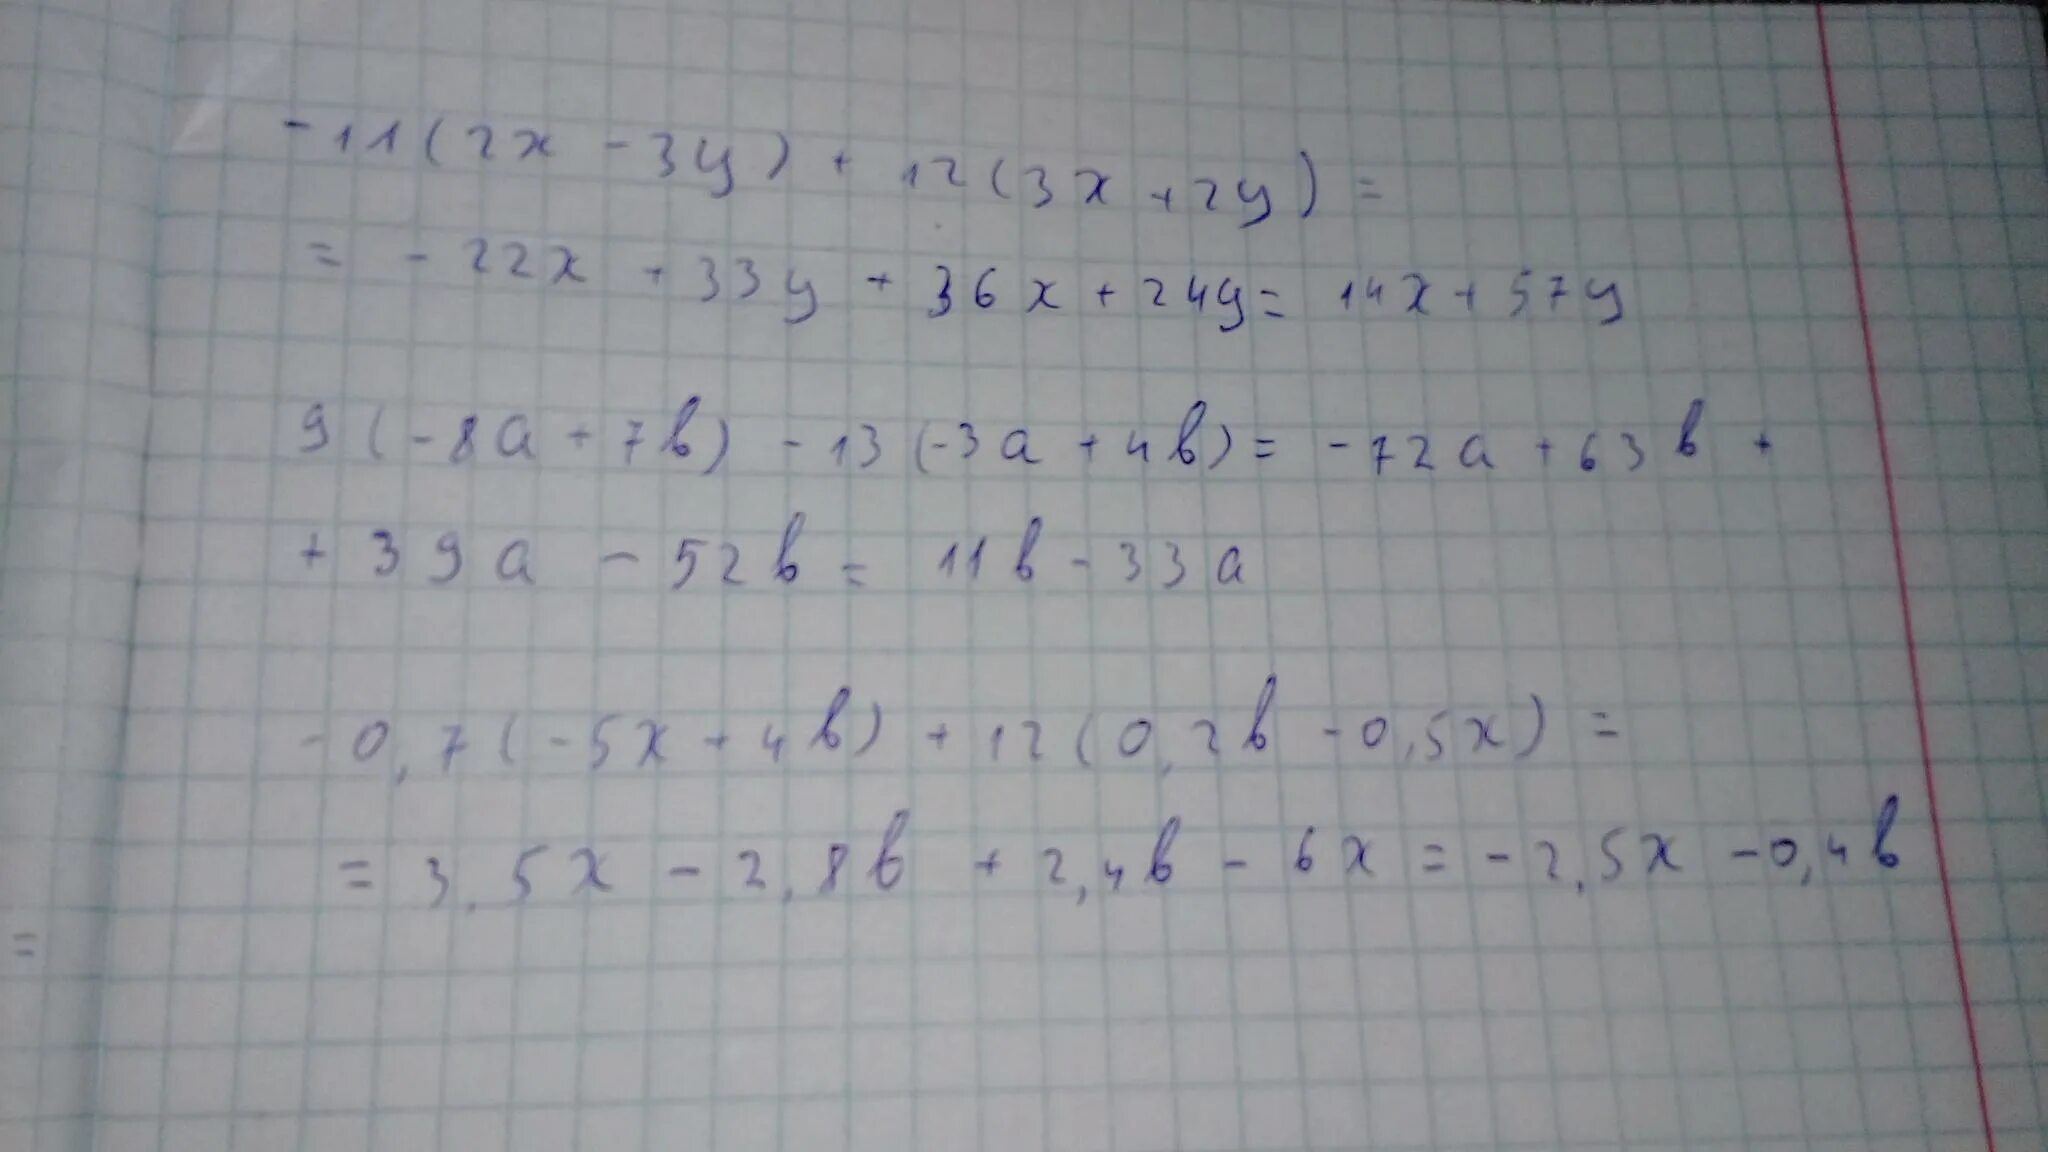 -11(2x - 3y) + 12(3x + 2y) =
= -22x + 33y + 36x + 24y = 14x + 57y
9(-8a + 7b) - 13(-3a + 4b) = -72a + 63b +
+ 39a - 52b = 11b - 33a
-0,7(-5x + 4b) + 12(0,2b - 0,5x) =
= 3,5x - 2,8b + 2,4b - 6x = -2,5x - 0,4b
=